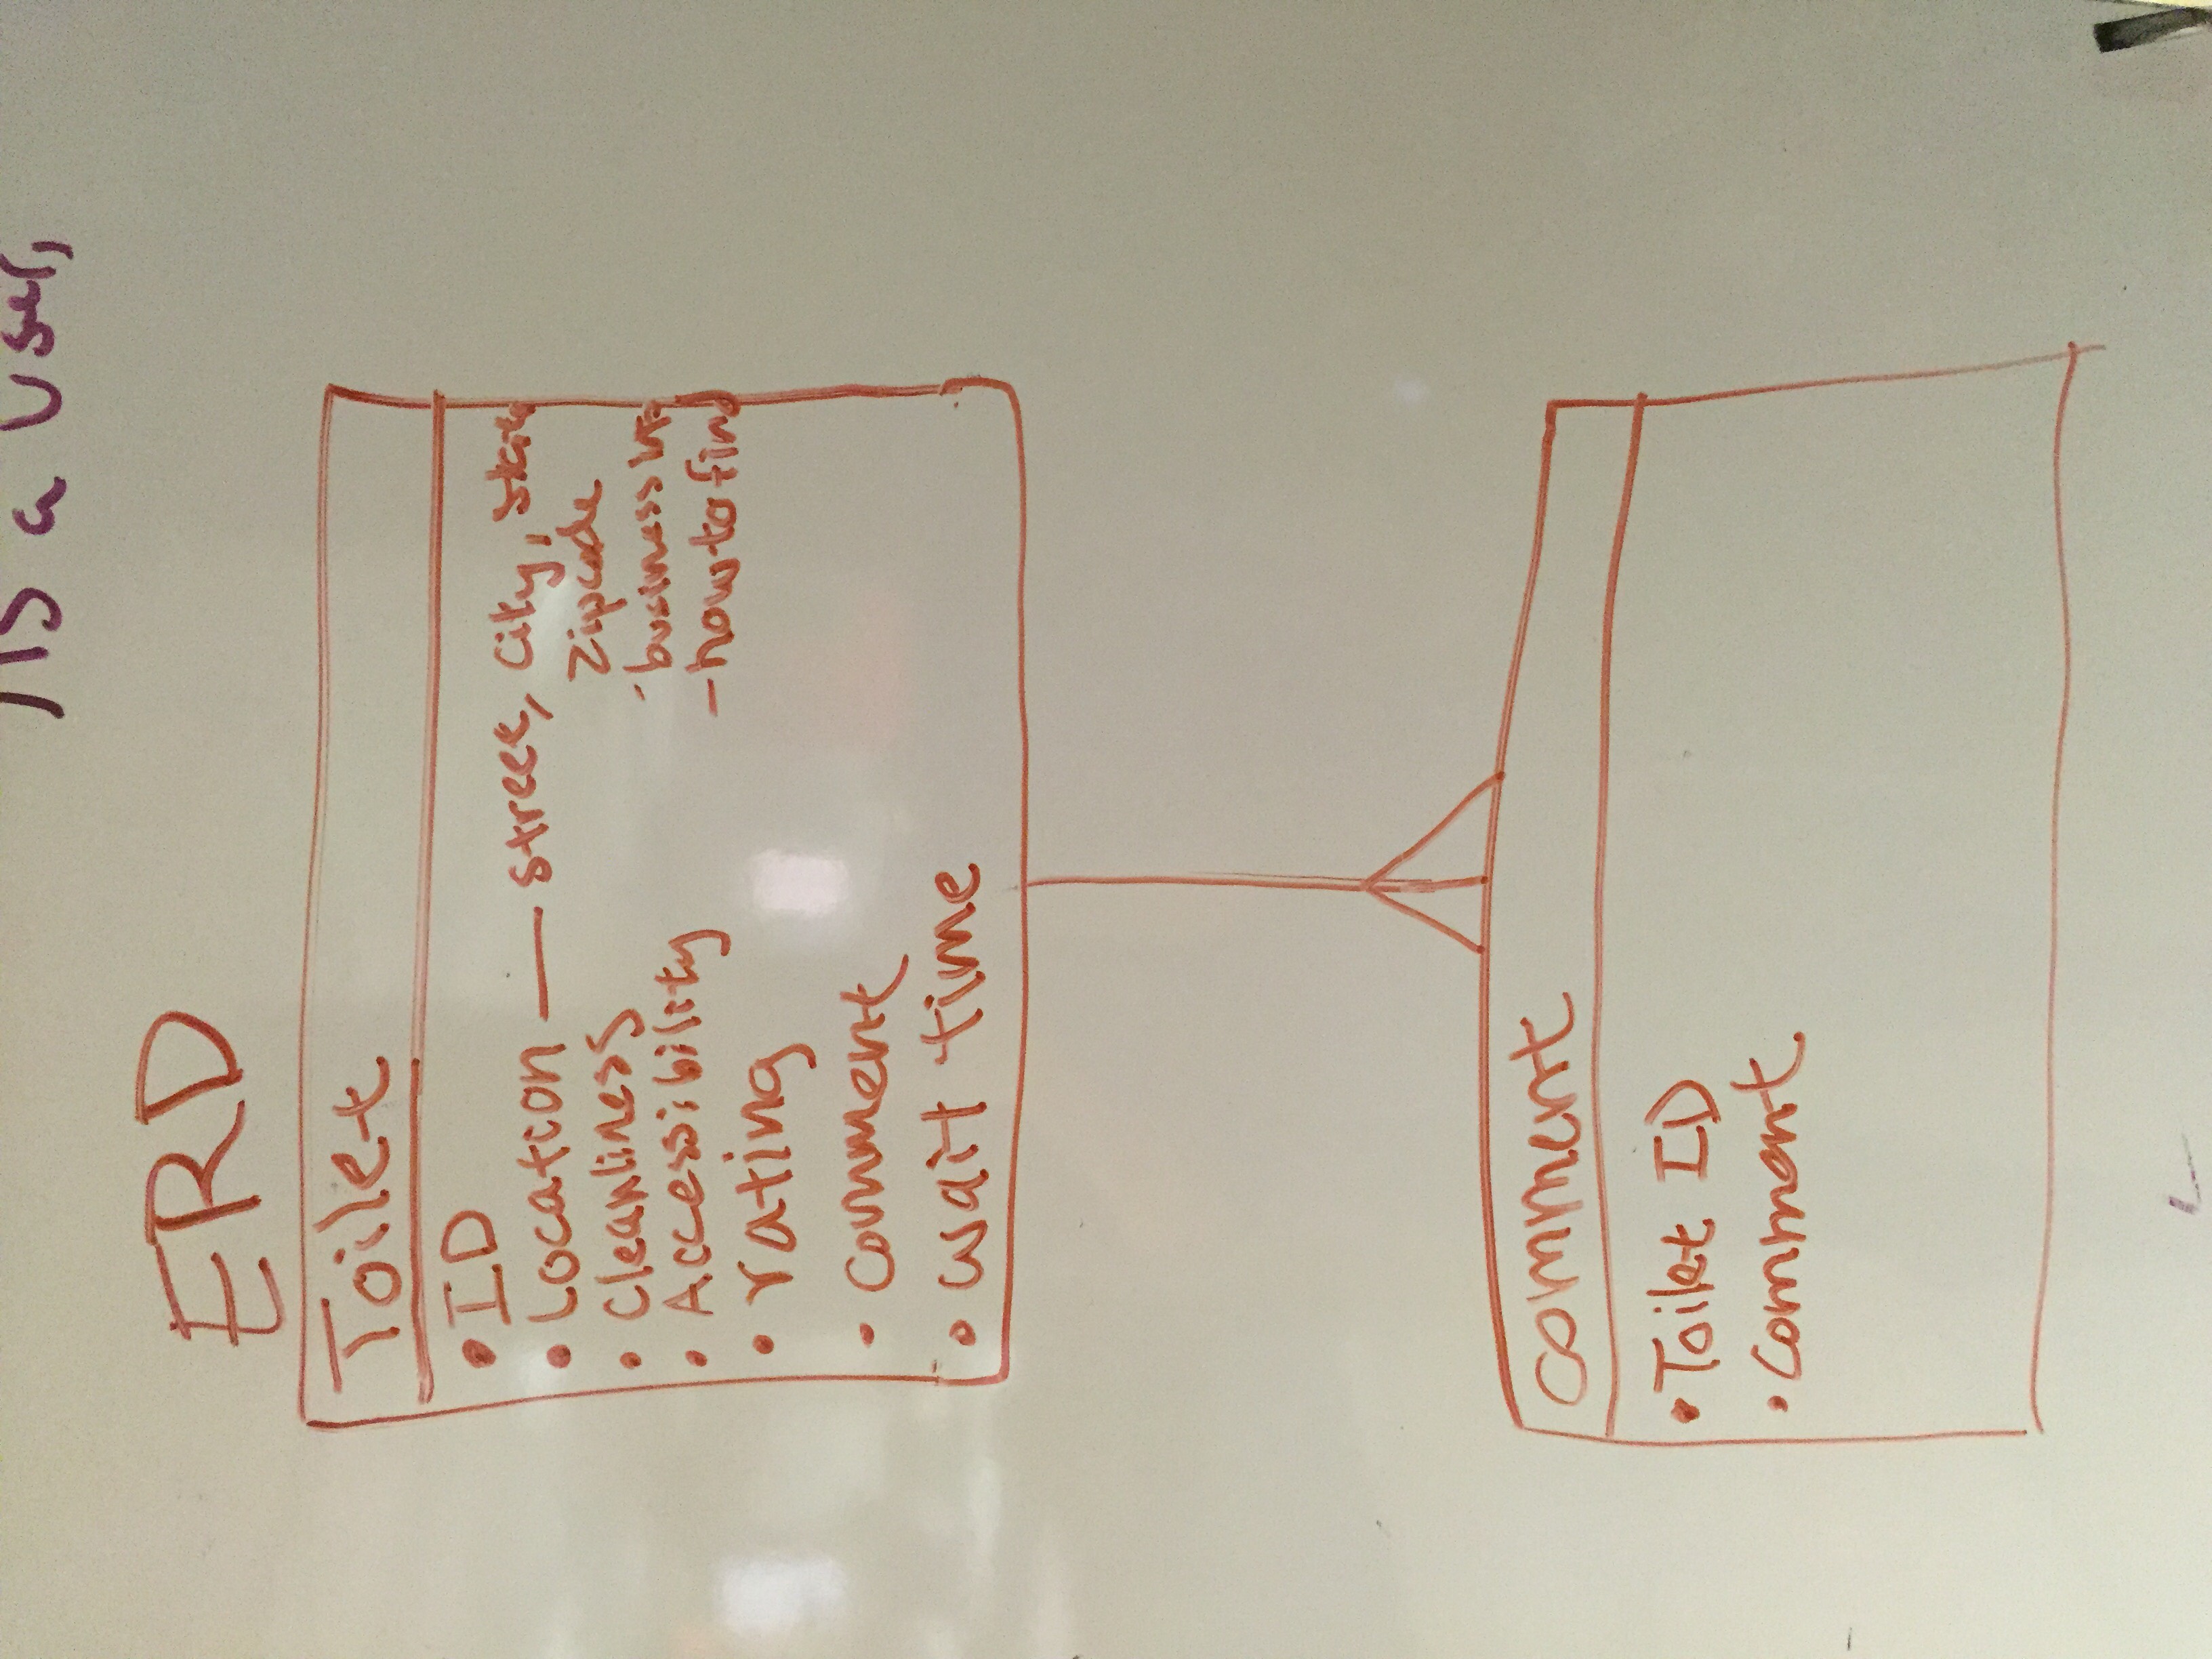 As a User,
ERD
Toilet
• ID
• Location — street, City, State
Zipcode
- business
• Cleanliness
• Accessibility
- how to find
• rating
• comment
• wait time
comment
• Toilet ID
• Comment